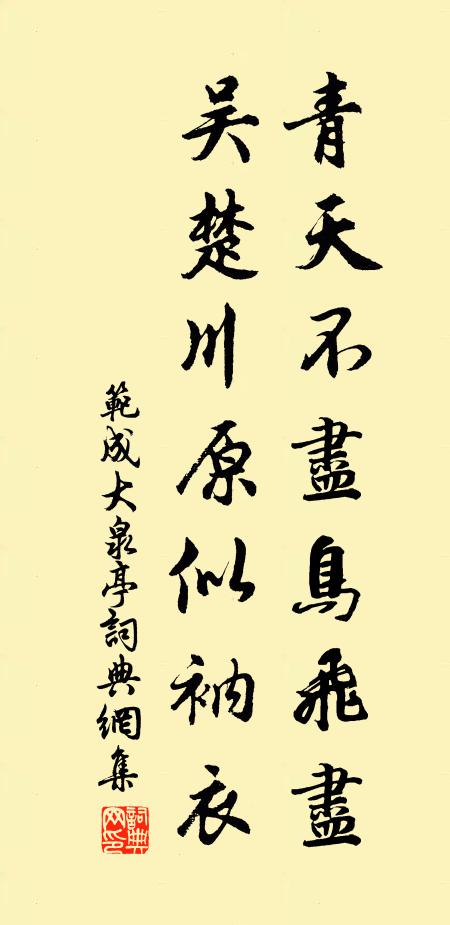 青天不盡鳥飛盡
吳楚川原似衲衣
範成大泉亭詞典網集
詞典網印